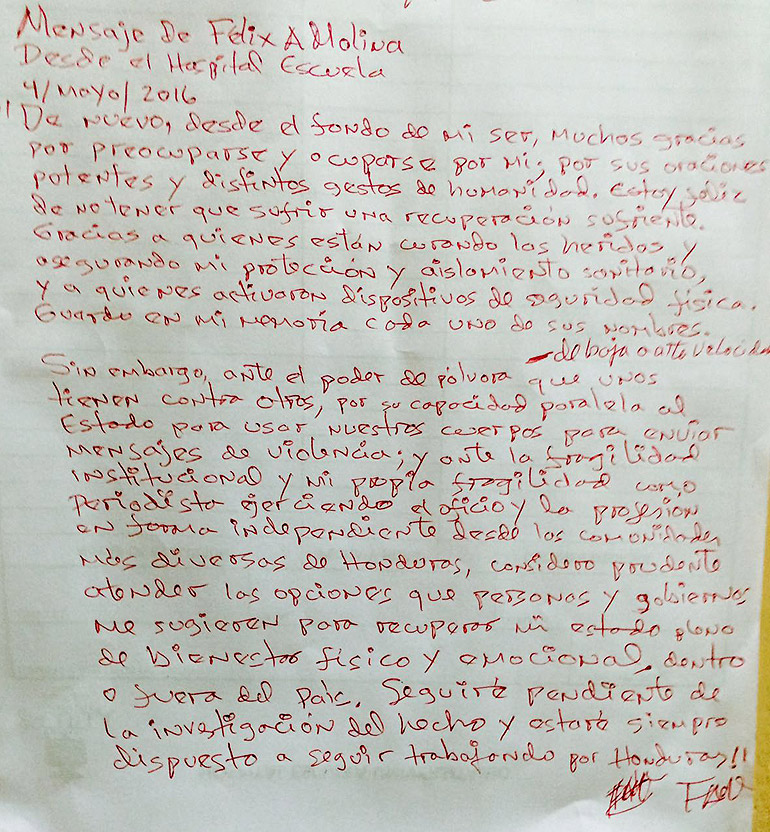 Mensaje De Félix A Molina
Desde el Hospital Escuela
4/Mayo/2016
"De nuevo, desde el fondo de mi ser, muchos gracias
por preocuparse y ocuparse por mi; por sus oraciones
potentes y distintos gestos de humanidad. Estoy feliz
de no tener que sufrir una recuperación sufriente.
Gracias a quienes están curando las heridas y
asegurando mi protección y aislamiento sanitario,
y a quienes activaron dispositivos de seguridad física.
Guardo en mi memoria cada uno de sus nombres.
de baja o alta velocidad
Sin embargo, ante el poder de pólvora que unos
tienen contra otros, por su capacidad paralela al
Estado para usar nuestros cuerpos para enviar
mensajes de violencia; y ante la fragilidad
institucional y mi propia fragilidad como
periodista ejerciendo el oficio y la profesión
en forma independiente desde las comunidades
más diversas de Honduras, considero prudente
atender las opciones que personas y gobiernos
me sugieren para recuperar mi estado pleno
de bienestar físico y emocional, dentro
o fuera del país. Seguiré pendiente de
la investigación del hecho y estaré siempre
dispuesto a seguir trabajando por Honduras!!